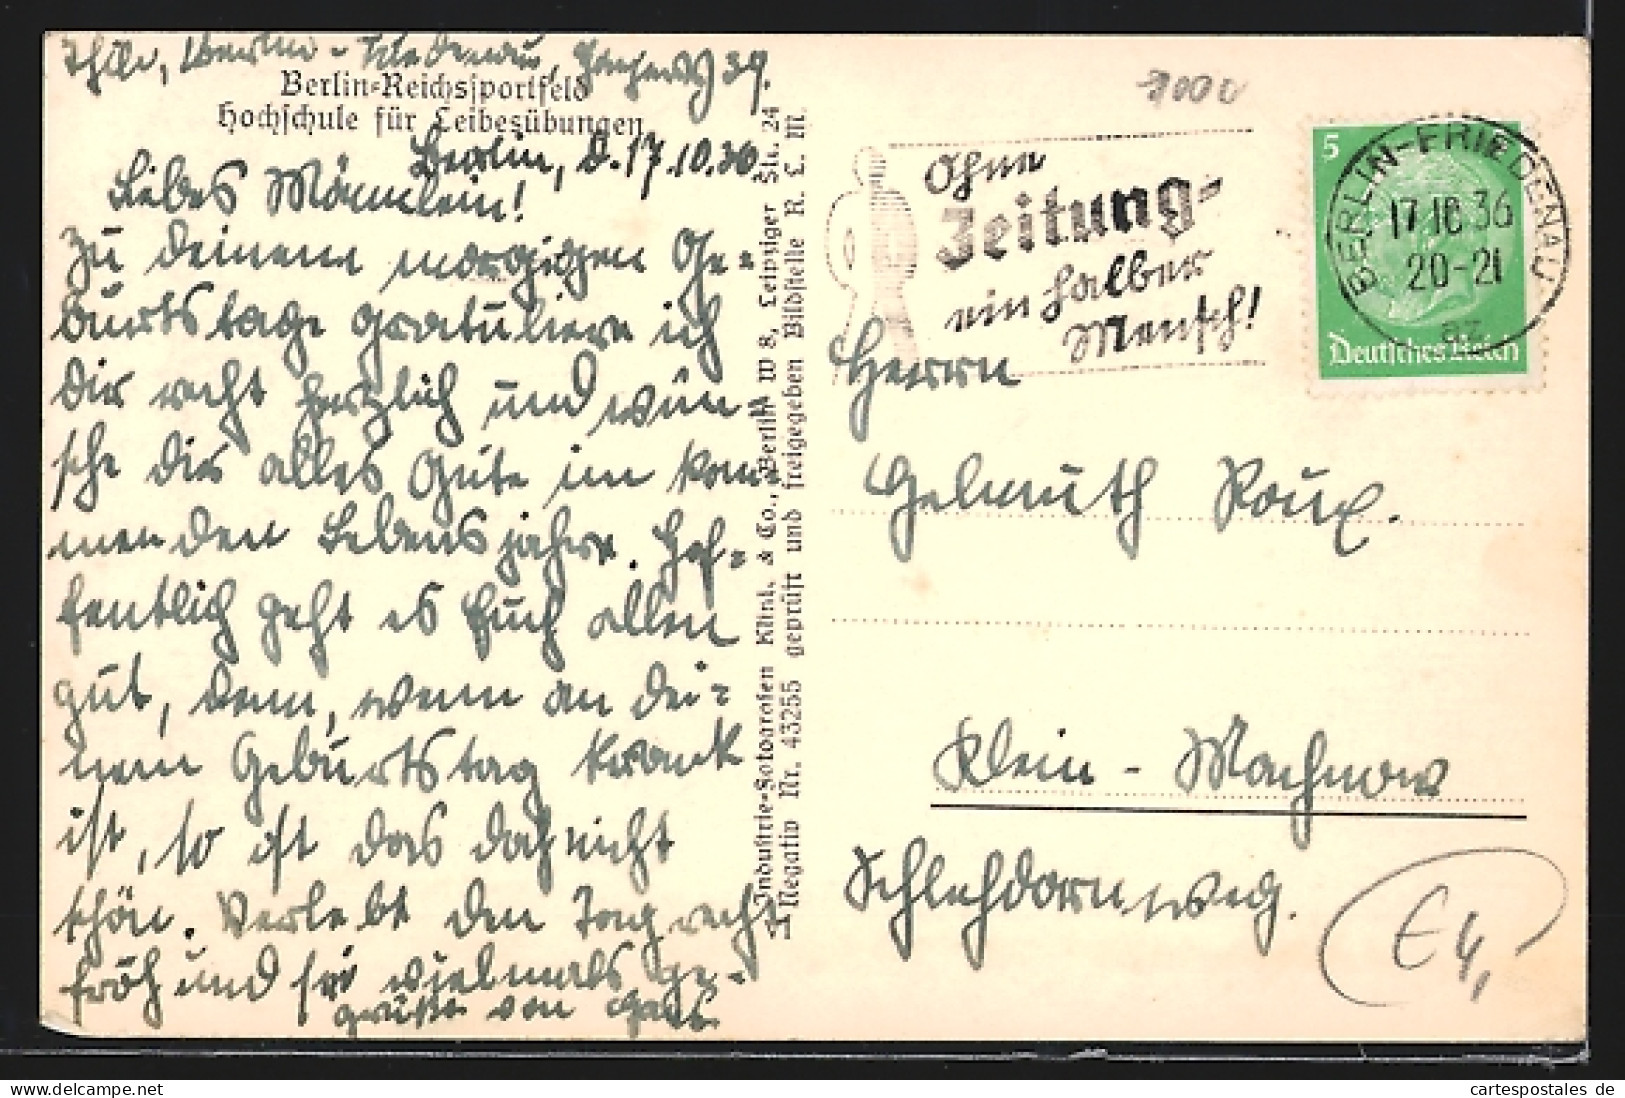 Berlin-Friedenau, 39.
Berlin-Reichssportfeld
Hochschule für Leibesübungen
Berlin, d. 17.10.36
Liebes Männlein!
Zu deinem morgigen Ge-
burtstage gratuliere ich
dir recht herzlich und wün-
sche dir alles Gute im kom-
menden Lebensjahre. Hof-
fentlich geht es Euch allen
gut, denn, wenn an dei-
nem Geburtstag krank
ist, so ist das doch nicht
schön. Verlebt den Tag recht
fröh und sei vielmals ge-
grüßt von
Industrie-Fotografen Klinke & Co., Berlin W 8, Leipziger Str. 24
Negativ Nr. 43255 geprüft und freigegeben Bildstelle R. L. M.
7000
Ohne
Zeitung-
ein halber
Mensch!
5
Deutsches Reich
BERLIN-FRIEDENAU
17.10.36
20-21
az
Herrn
Helmuth Roux.
Klein-Machnow
Schlehdornweg.
E4,
cartespostales de